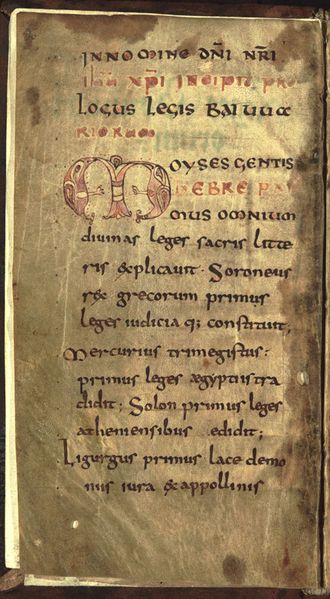 IN NOMINE DNI NRI
IHU XPI INCIPIT PRO
LOGUS LEGIS BAIUUA
RIORUM
MOYSES GENTIS
HEBRE
mus omnium
divinas leges sacris litte
ris explicauit. Foroneus
rex grecorum primus
leges iudicia q; constituit,
Mercurius trimegistus:
primus leges ægyptiis tra
didit; Solon primus leges
atheniensibus edidit;
Ligurgus primus lacedemo
niis iura ex appollinis